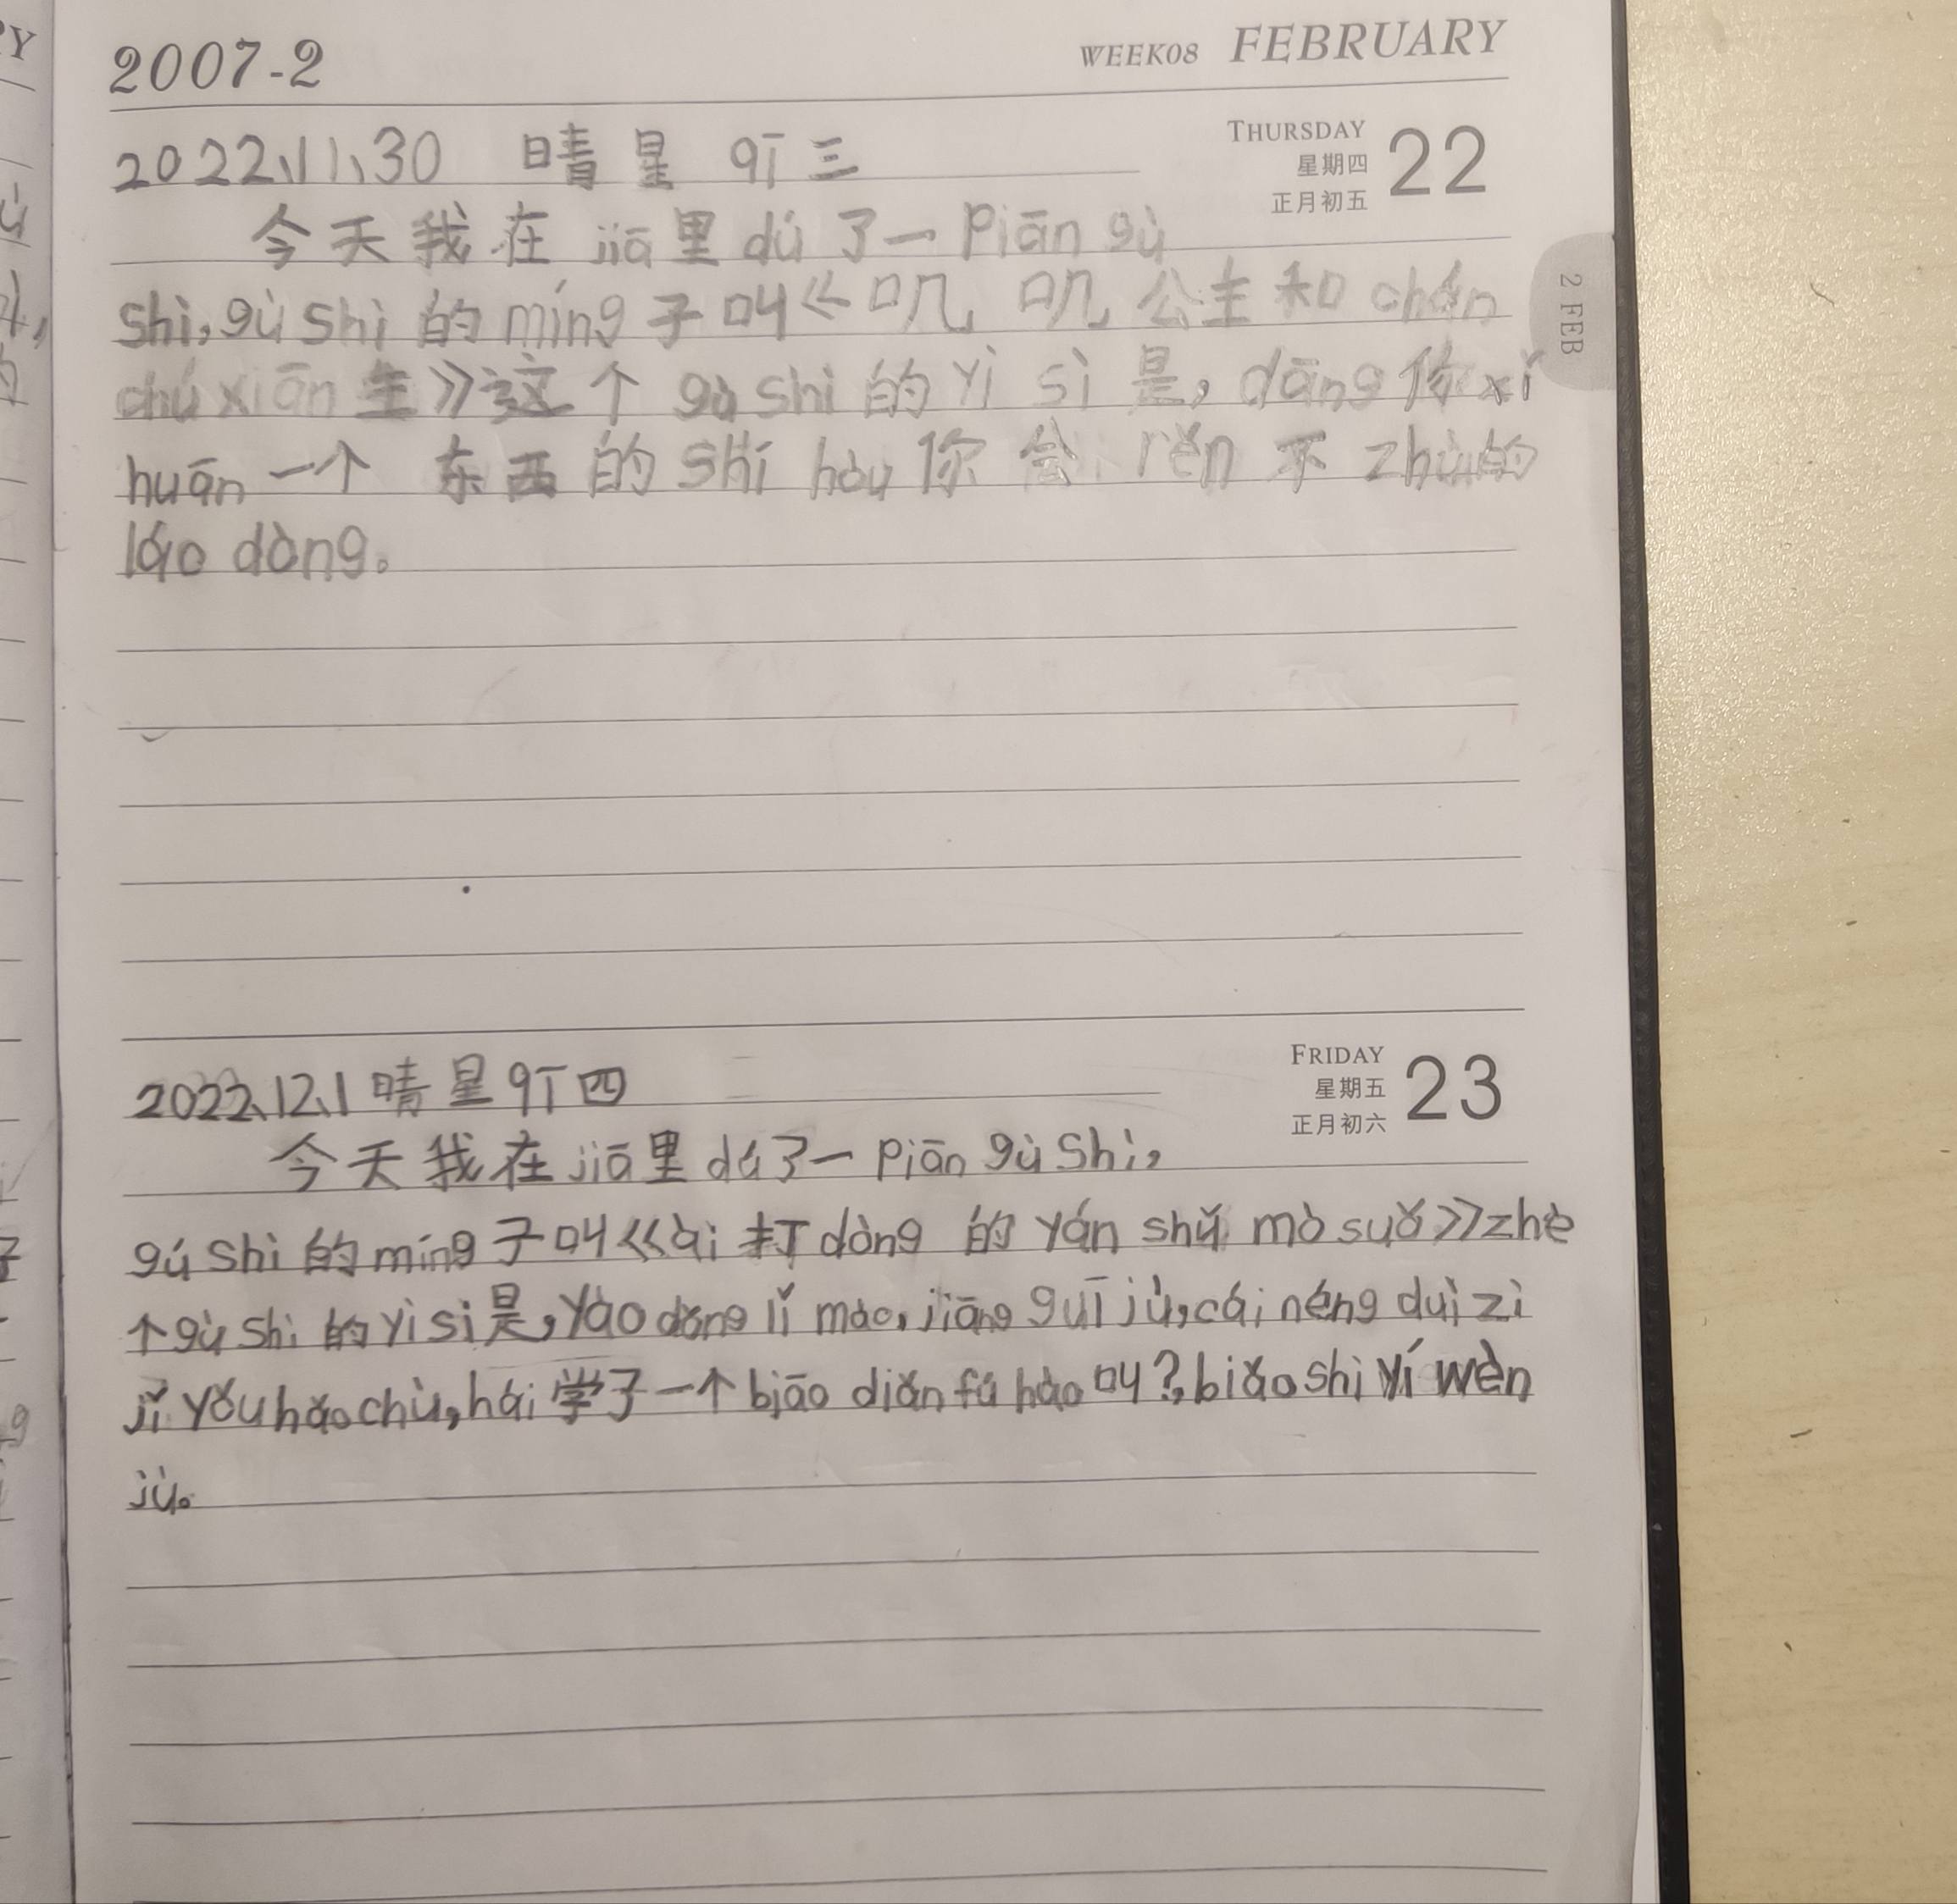 2007-2 WEEK08 FEBRUARY
THURSDAY
星期四 22
正月初五
2022、11、30 晴 星 qī 三
今天我在 jiā 里 dú 了一 Piān gù
shì,gù shì 的 míng 子叫《叽 叽 公主和 chán
chú xiān 生》这个 gù shi 的 yì sì 是, dāng 你 xǐ
huān 一个 东西的 shí hòu 你 会 rěn 不 zhù 的
láo dòng。
2 FEB
FRIDAY
星期五 23
正月初六
2022、12、1 晴 星 qī 四
今天我在 jiā 里 dú 了一 Piān gù Shì,
gú shì 的 míng 子叫《ài 打 dòng 的 yán shǔ mò suǒ》zhè
个 gù shi 的 yì si 是, yào dǒng lǐ mào, jiāng guī jù, cái néng duì zì
jǐ yǒu hǎo chù, hái 学了一个 biāo diǎn fú hào 叫?, biǎo shì yí wèn
jù。